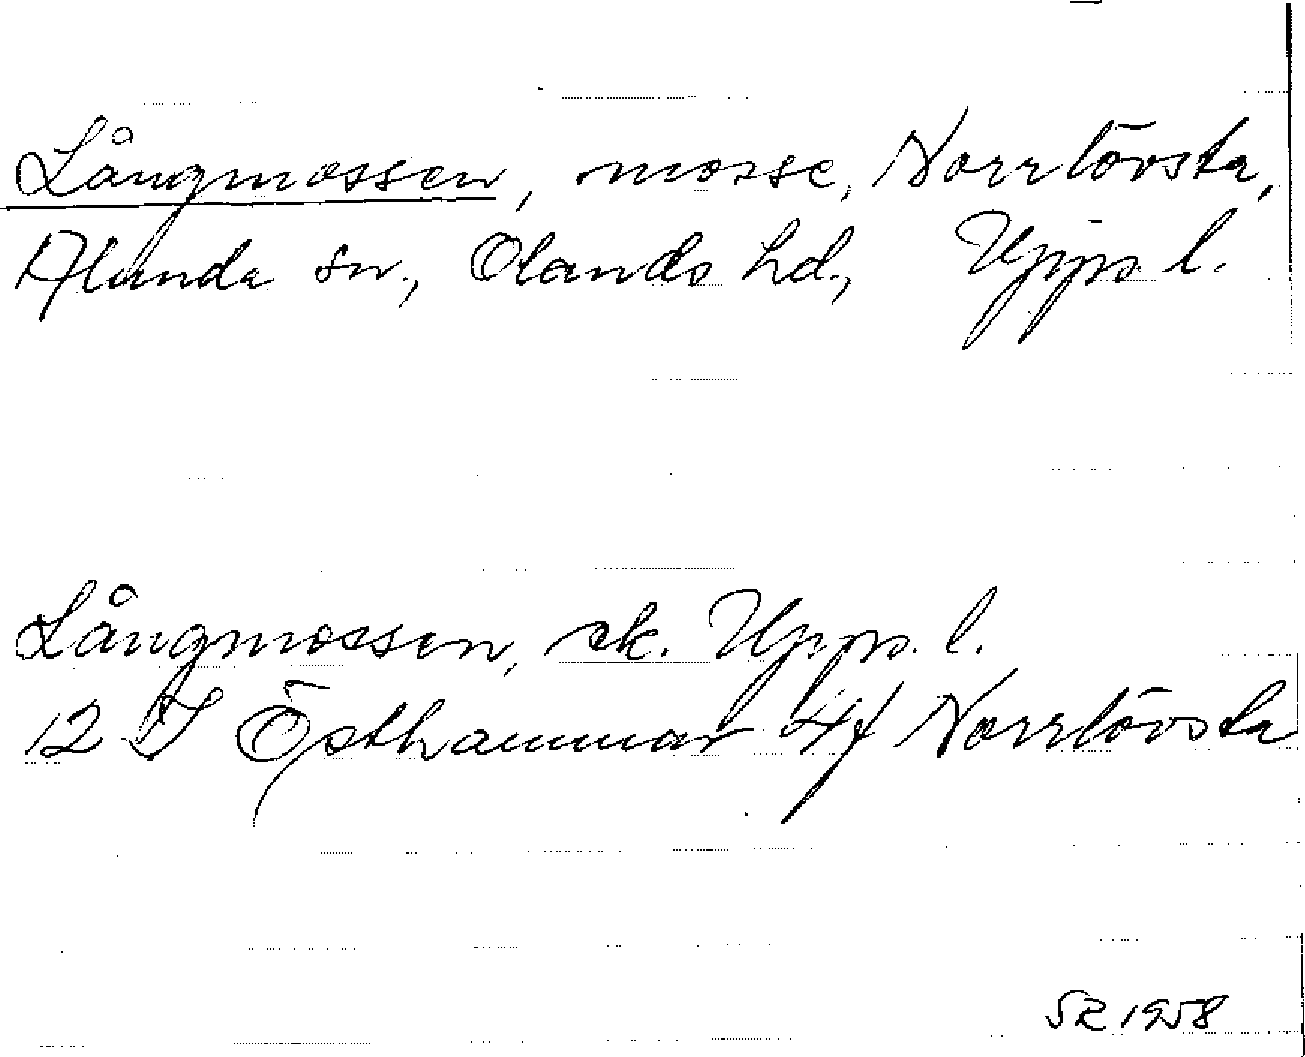 Långmossen, mosse, Norrlövsta,
Alunda sn., Olands hd., Upps. l.
Långmossen, ek. Upps. l.
12 I Östhammar 4f Norrlövsta
SR 1958